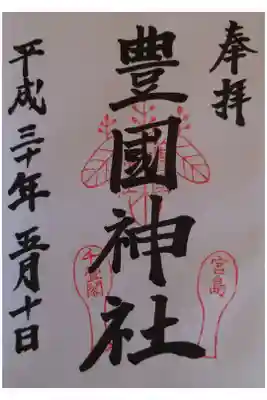 奉拝
豊國神社
平成三十年五月十日
千畳閣
宮島